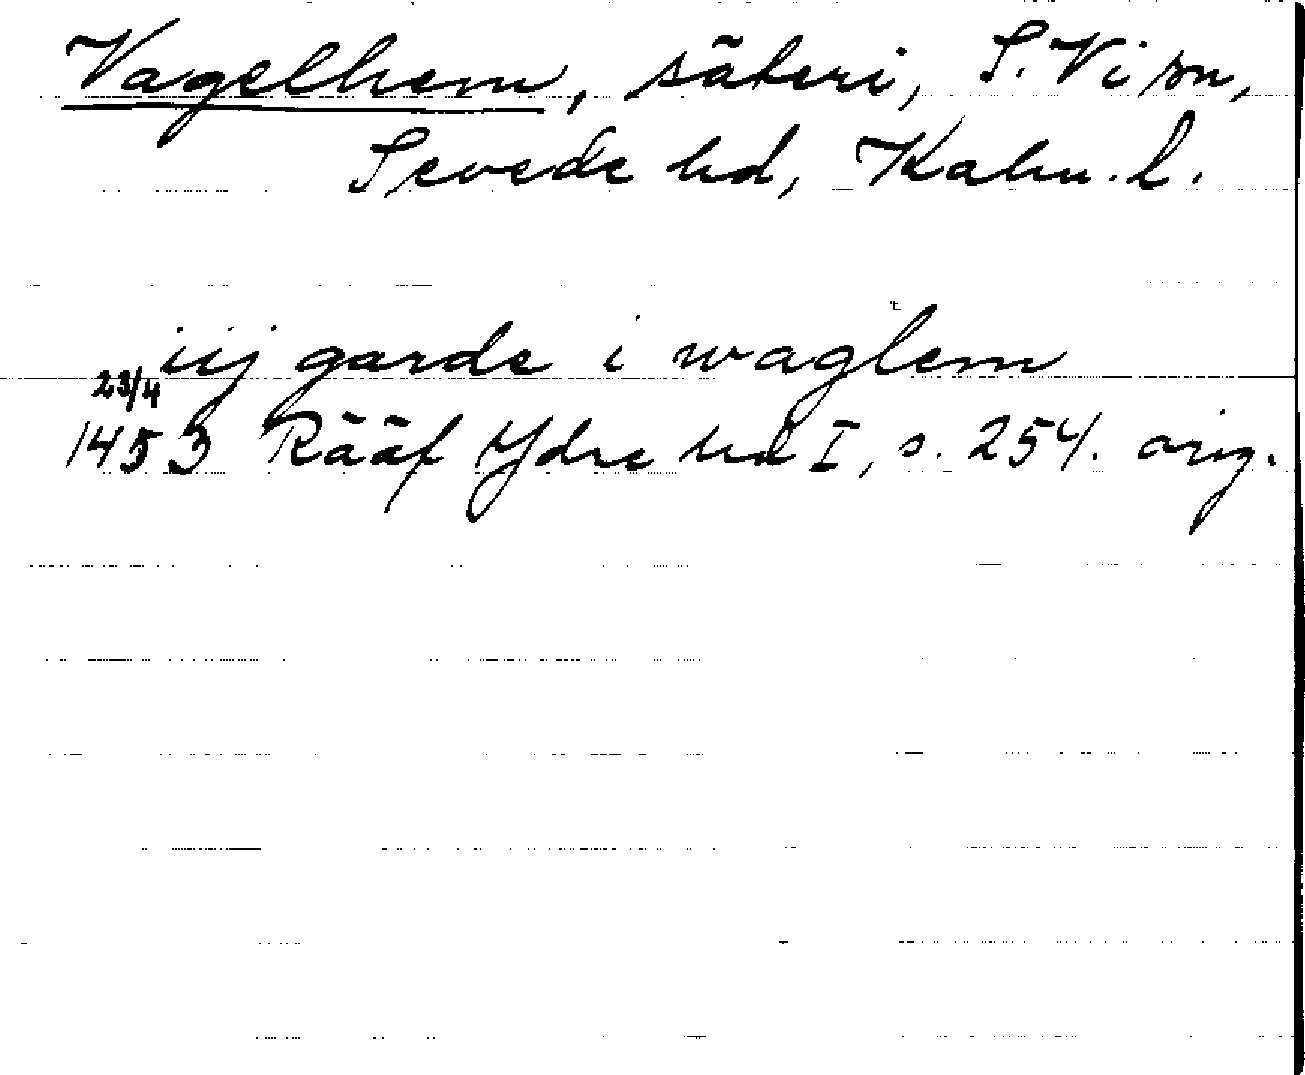 Vagelhem, säteri, S. Vi sn,
Sevede hd, Kalm. l.
iij garde i waglem
23/4
1453 Rääf Ydre hd I, s. 254. orig.